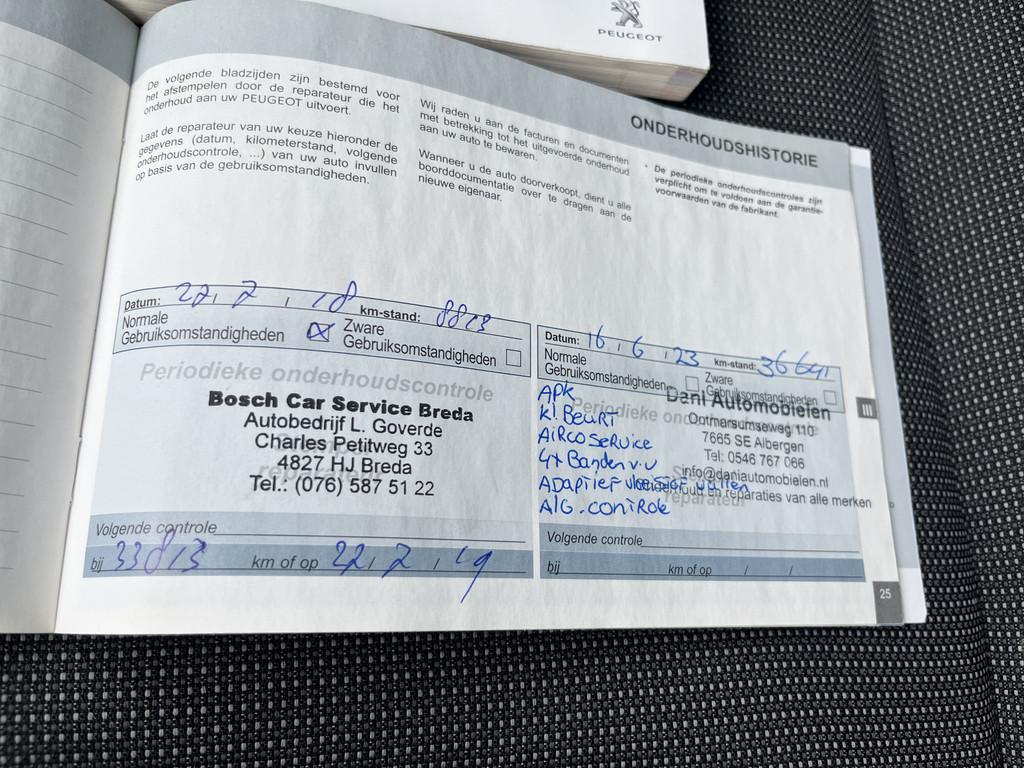 PEUGEOT
ONDERHOUDSHISTORIE
De volgende bladzijden zijn bestemd voor
het afstempelen door de reparateur die het
onderhoud aan uw PEUGEOT uitvoert.
Laat de reparateur van uw keuze hieronder de
gegevens (datum, kilometerstand, volgende
onderhoudscontrole, ...) van uw auto invullen
op basis van de gebruiksomstandigheden.
Wij raden u aan de facturen en documenten
met betrekking tot het uitgevoerde onderhoud
aan uw auto te bewaren.
Wanneer u de auto doorverkoopt, dient u alle
boorddocumentatie over te dragen aan de
nieuwe eigenaar.
* De periodieke onderhoudscontroles zijn
verplicht om te voldoen aan de garantie-
voorwaarden van de fabrikant.
Datum: 22 / 7 / 18 km-stand: 8813
Normale
Gebruiksomstandigheden
Zware
Gebruiksomstandigheden
Periodieke onderhoudscontrole
Bosch Car Service Breda
Autobedrijf L. Goverde
Charles Petitweg 33
4827 HJ Breda
Tel.: (076) 587 51 22
Volgende controle
bij 33813 km of op 22 / 7 / 19
Datum: 16 / 6 / 23 km-stand: 36641
Normale
Gebruiksomstandigheden
Zware
Gebruiksomstandigheden
Dani Automobielen
Ootmarsumseweg 110
7665 SE Albergen
Tel: 0546 767 066
info@daniautomobielen.nl
en reparaties van alle merken
APK
Kl. BeURT
AiRCO SeRvice
4x Banden v.v
ADAPtief
AlG. conTRole
reparateur
Volgende controle
bij km of op / /
III
25